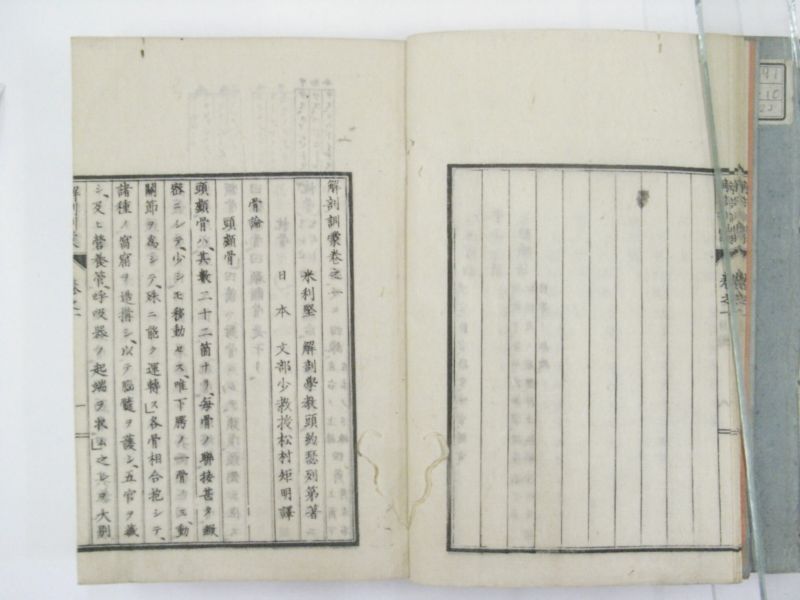 解剖訓蒙卷之一
米利堅 解剖學教頭約瑟列第著
日本 文部少教授松村矩明譯
骨論
頭顱骨
頭顱骨ハ、其數二十二箇ナリ、每骨ノ聯接甚タ緻
密ニシテ、少シモ移動セス、唯下腭ノ一骨ノミ、動
關節ヲ爲シテ、殊ニ能ク運轉ス」各骨相合抱シテ、
諸種ノ窩窟ヲ造搆シ、以テ腦髓ヲ護シ、五官ヲ藏
シ、及ヒ營養管、呼吸器ノ起端ヲ求ム」之レヲ大別
解剖訓蒙 卷之一
卷之一